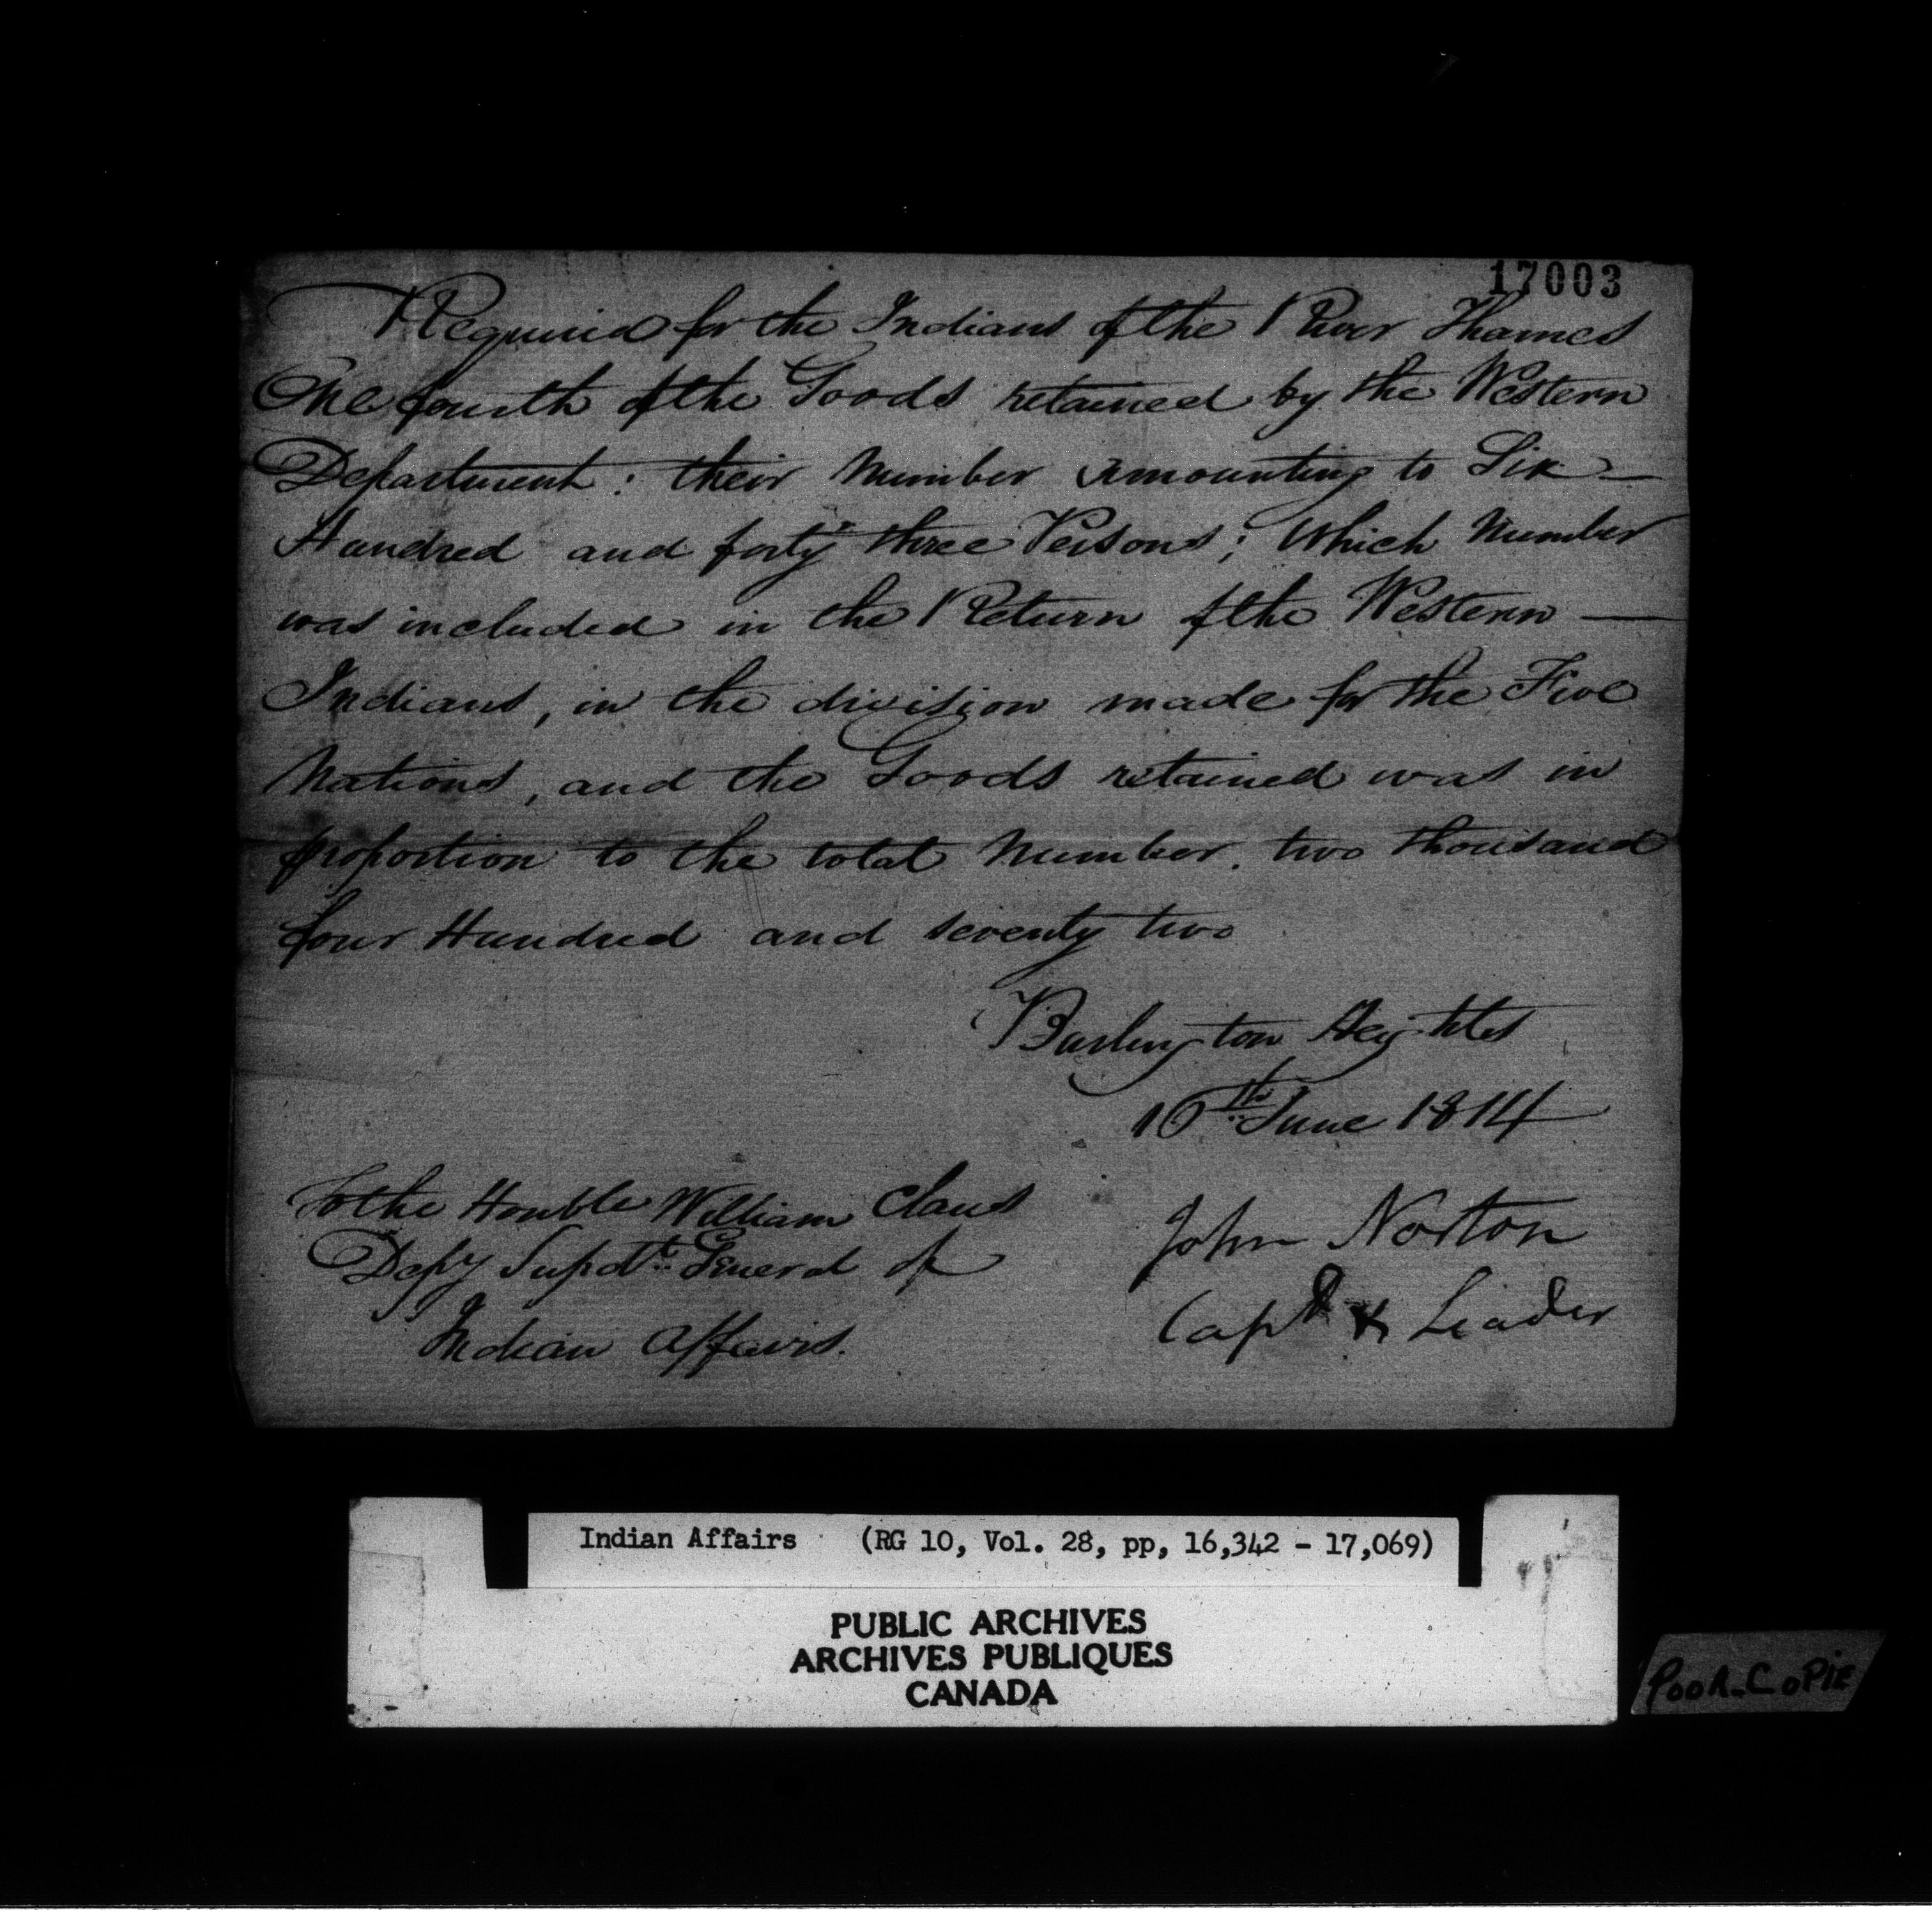 17003
Required for the Indians of the River Thames
One fourth of the Goods retained by the Western
Department: their Number amounting to Six —
Hundred and forty three Persons; Which Number
was included in the Return of the Western —
Indians, in the division made for the Five
Nations, and the Goods retained was in
proportion to the total Number. two thousand
four Hundred and seventy two
Burlington Heights
10th June 1814
To the Honble William Claus
Depy Supdt. General of
Indian Affairs.
John Norton
Capt & Leader
Indian Affairs (RG 10, Vol. 28, pp, 16,342 - 17,069)
PUBLIC ARCHIVES
ARCHIVES PUBLIQUES
CANADA
POOR_COPIE